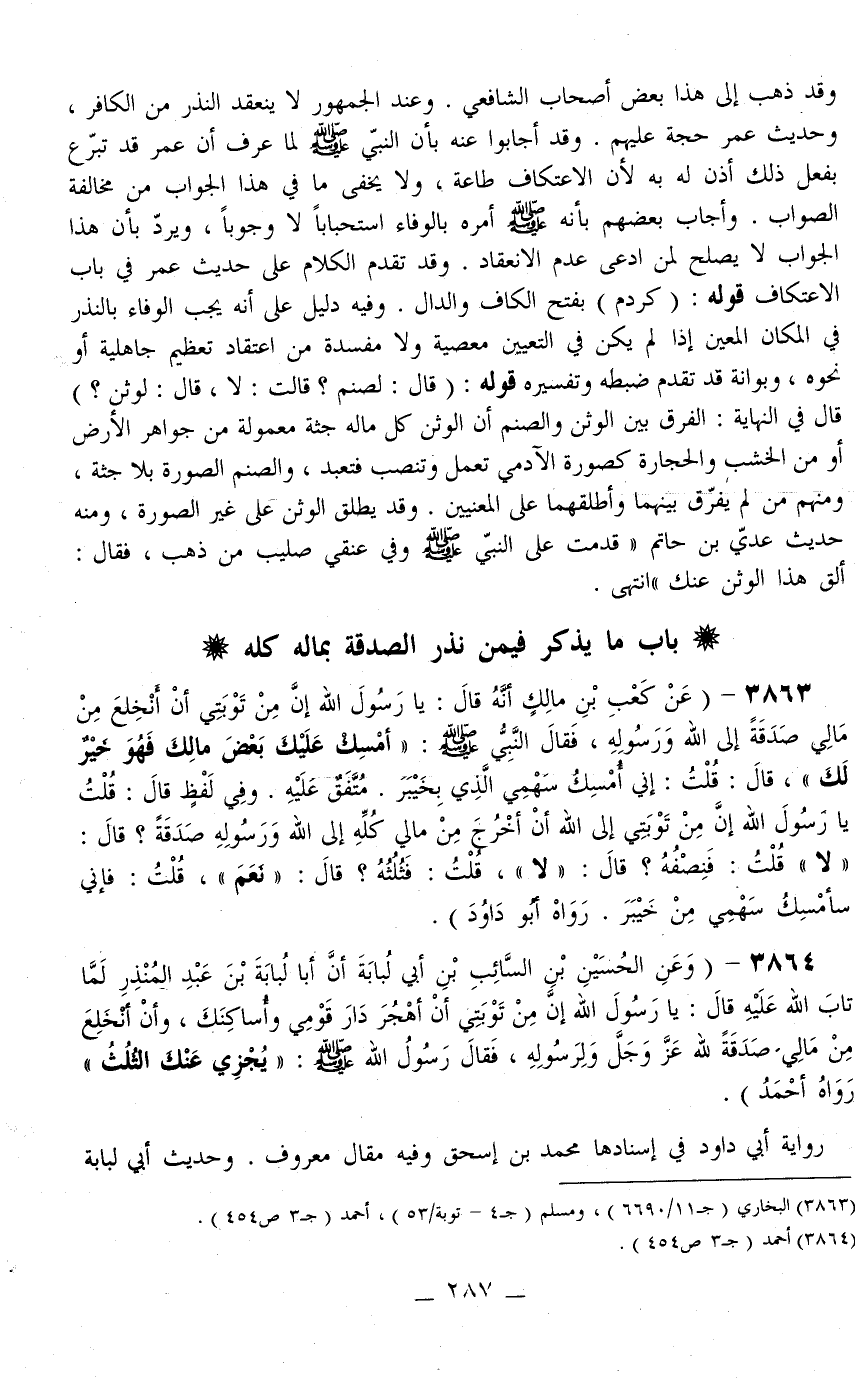 وقد ذهب إلى هذا بعض أصحاب الشافعي . وعند الجمهور لا ينعقد النذر من الكافر ،
وحديث عمر حجة عليهم . وقد أجابوا عنه بأن النبيّ ﷺ لما عرف أن عمر قد تبرّع
بفعل ذلك أذن له به لأن الاعتكاف طاعة ، ولا يخفى ما في هذا الجواب من مخالفة
الصواب . وأجاب بعضهم بأنه ﷺ أمره بالوفاء استحباباً لا وجوباً ، ويردّ بأن هذا
الجواب لا يصلح لمن ادعى عدم الانعقاد . وقد تقدم الكلام على حديث عمر في باب
الاعتكاف قوله : ( كردم ) بفتح الكاف والدال . وفيه دليل على أنه يجب الوفاء بالنذر
في المكان المعين إذا لم يكن في التعيين معصية ولا مفسدة من اعتقاد تعظيم جاهلية أو
نحوه ، وبوانة قد تقدم ضبطه وتفسيره قوله : ( قال : لصنم ؟ قالت : لا ، قال : لوثن ؟ )
قال في النهاية : الفرق بين الوثن والصنم أن الوثن كل ماله جثة معمولة من جواهر الأرض
أو من الخشب والحجارة كصورة الآدمي تعمل وتنصب فتعبد ، والصنم الصورة بلا جثة ،
ومنهم من لم يفرّق بينهما وأطلقهما على المعنيين . وقد يطلق الوثن على غير الصورة ، ومنه
حديث عديّ بن حاتم « قدمت على النبيّ ﷺ وفي عنقي صليب من ذهب ، فقال :
ألق هذا الوثن عنك »انتهى .
باب ما يذكر فيمن نذر الصدقة بماله كله
٣٨٦٣ – ( عَنْ كَعْبِ بْنِ مالِكٍ أنَّهُ قالَ : يا رَسُولَ الله إنَّ مِنْ تَوْبَتِي أنْ أَنْخلِعَ مِنْ
مَالِي صَدَقَةً إلى الله وَرَسُولِهِ ، فَقالَ النَّبِيُّ ﷺ : « أمْسِكْ عَلَيْكَ بَعْضَ مالِكَ فَهُوَ خَيْرٌ
لَكَ » ، قالَ : قُلْتُ : إني أُمْسِكُ سَهْمِي الَّذِي بِخَيْبَرَ . مُتَّفَقٌ عَلَيْهِ . وفِي لَفْظٍ قالَ : قُلْتُ
يا رَسُولَ الله إنَّ مِنْ تَوْبَتِي إلى الله أنْ أخْرُجَ مِنْ مالي كُلِّهِ إلى الله وَرَسُولِهِ صَدَقَةً ؟ قالَ :
« لا » قُلْتُ : فَنِصْفُهُ ؟ قالَ : « لا » ، قُلْتُ : فَثُلُثُهُ ؟ قالَ : « نَعَمَ » ، قُلْتُ : فإني
سأمْسِكُ سَهْمِي مِنْ خَيْبَرَ . رَوَاهُ أبُو دَاوُدَ ) .
٣٨٦٤ – ( وَعَنِ الحُسَيْنِ بْنِ السَّائِبِ بْنِ أبي لُبابَةَ أنَّ أبا لُبابَةَ بْنَ عَبْدِ المُنْذِرِ لَمَّا
تابَ الله عَلَيْهِ قالَ : يا رَسُولَ الله إنَّ مِنْ تَوْبَتِي أنْ أهْجُرَ دَارَ قَوْمِي وأُساكِنَكَ ، وأنْ أنْخَلِعَ
مِنْ مَالِي صَدَقَةً لله عَزَّ وَجَلَّ وَلِرَسُولِهِ ، فَقالَ رَسُولُ الله ﷺ : « يُجْزِي عَنْكَ الثُلُثُ »
رَوَاهُ أحْمَدُ ) .
رواية أبي داود في إسنادها محمد بن إسحق وفيه مقال معروف . وحديث أبي لبابة
(٣٨٦٣) البخاري ( جـ١١/٦٦٩٠ ) ، ومسلم ( جـ٤ – توبة/٥٣ ) ، أحمد ( جـ٣ ص٤٥٤ ) .
(٣٨٦٤) أحمد ( جـ٣ ص٤٥٤ ) .
– ٢٨٧ –